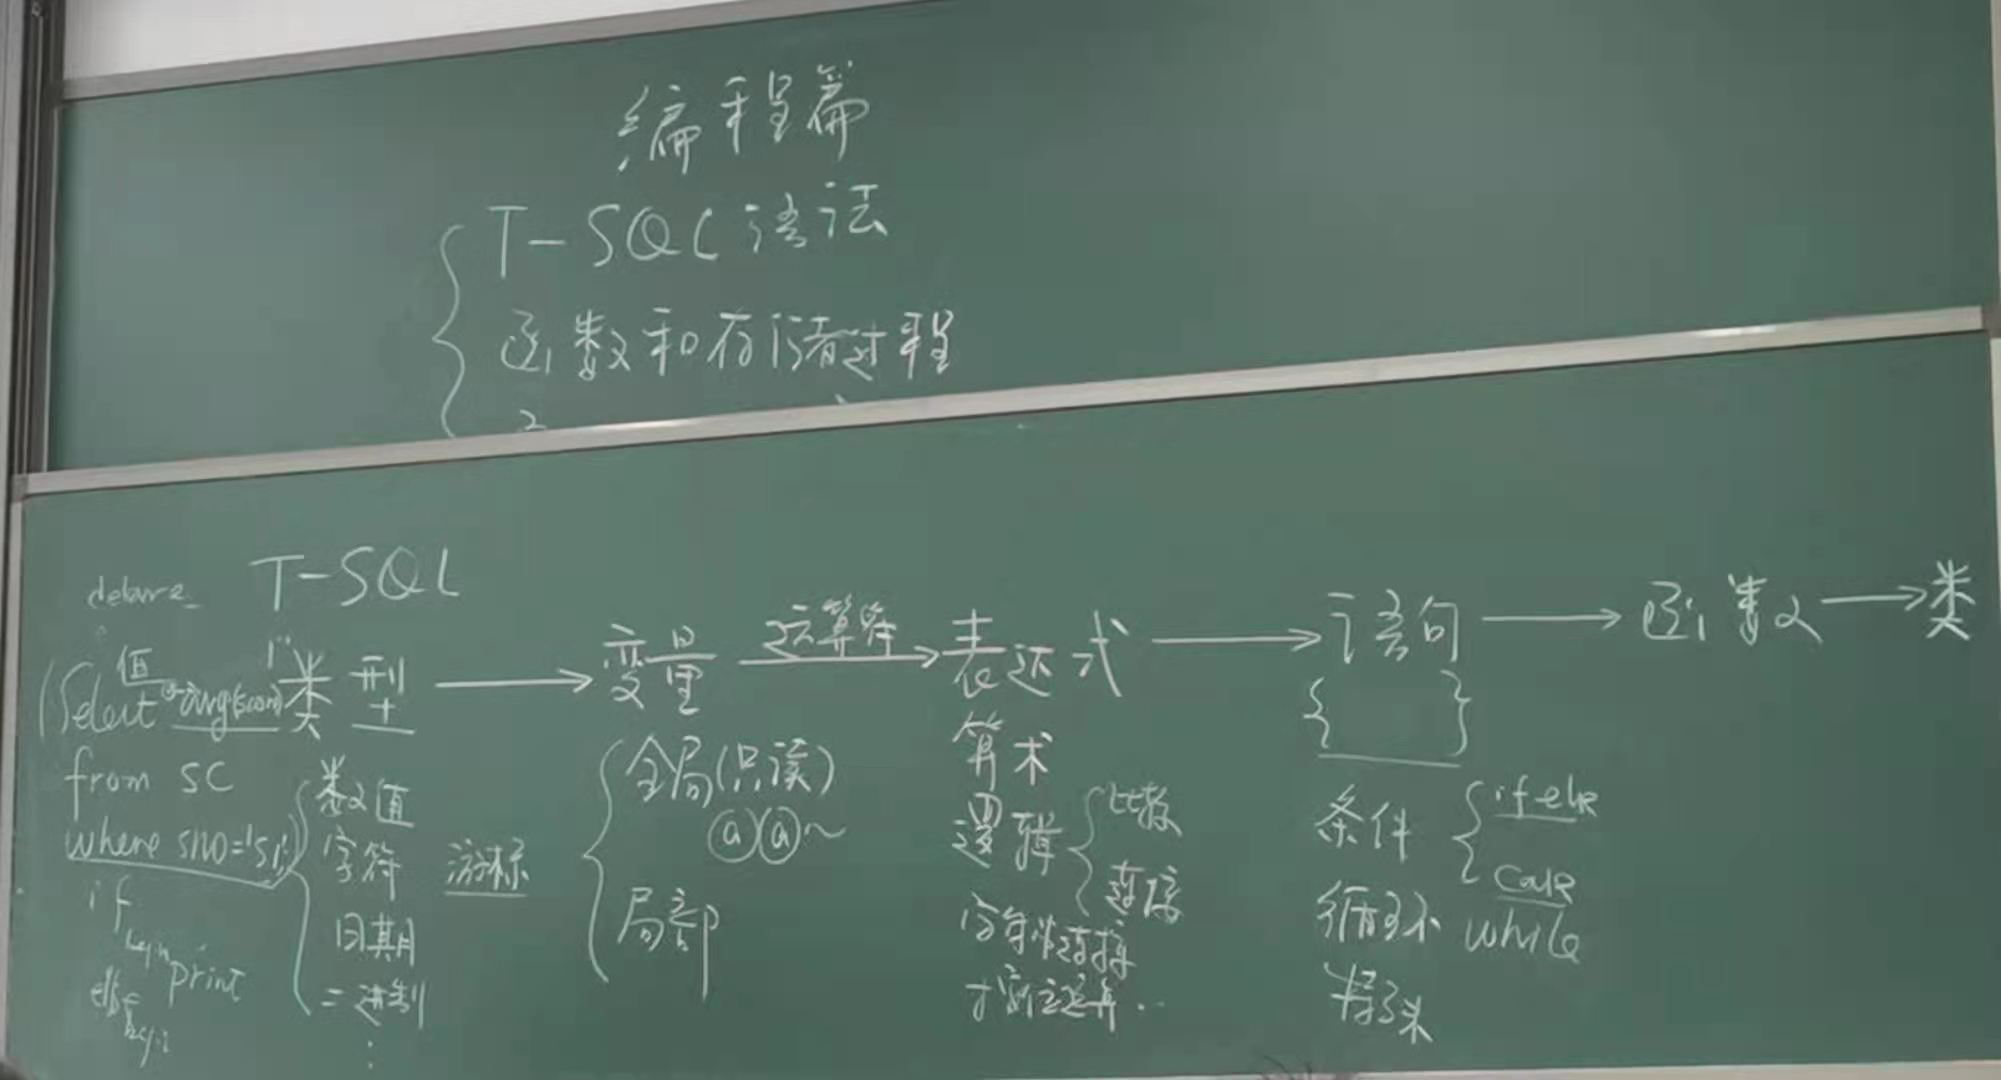 编程篇
T-SQL语法
函数和存储过程
T-SQL
值 类型 → 变量 运算符 → 表达式 → 语句 → 函数 → 类
(Select avg(score)
from SC
where sno='S1')
if
begin
print
else
begin
数值
字符
日期
二进制
⋮
游标
全局(只读)
@@~
局部
算术
逻辑
比较
连接
字符串连接
{ }
条件
if else
case
循环 while
特殊